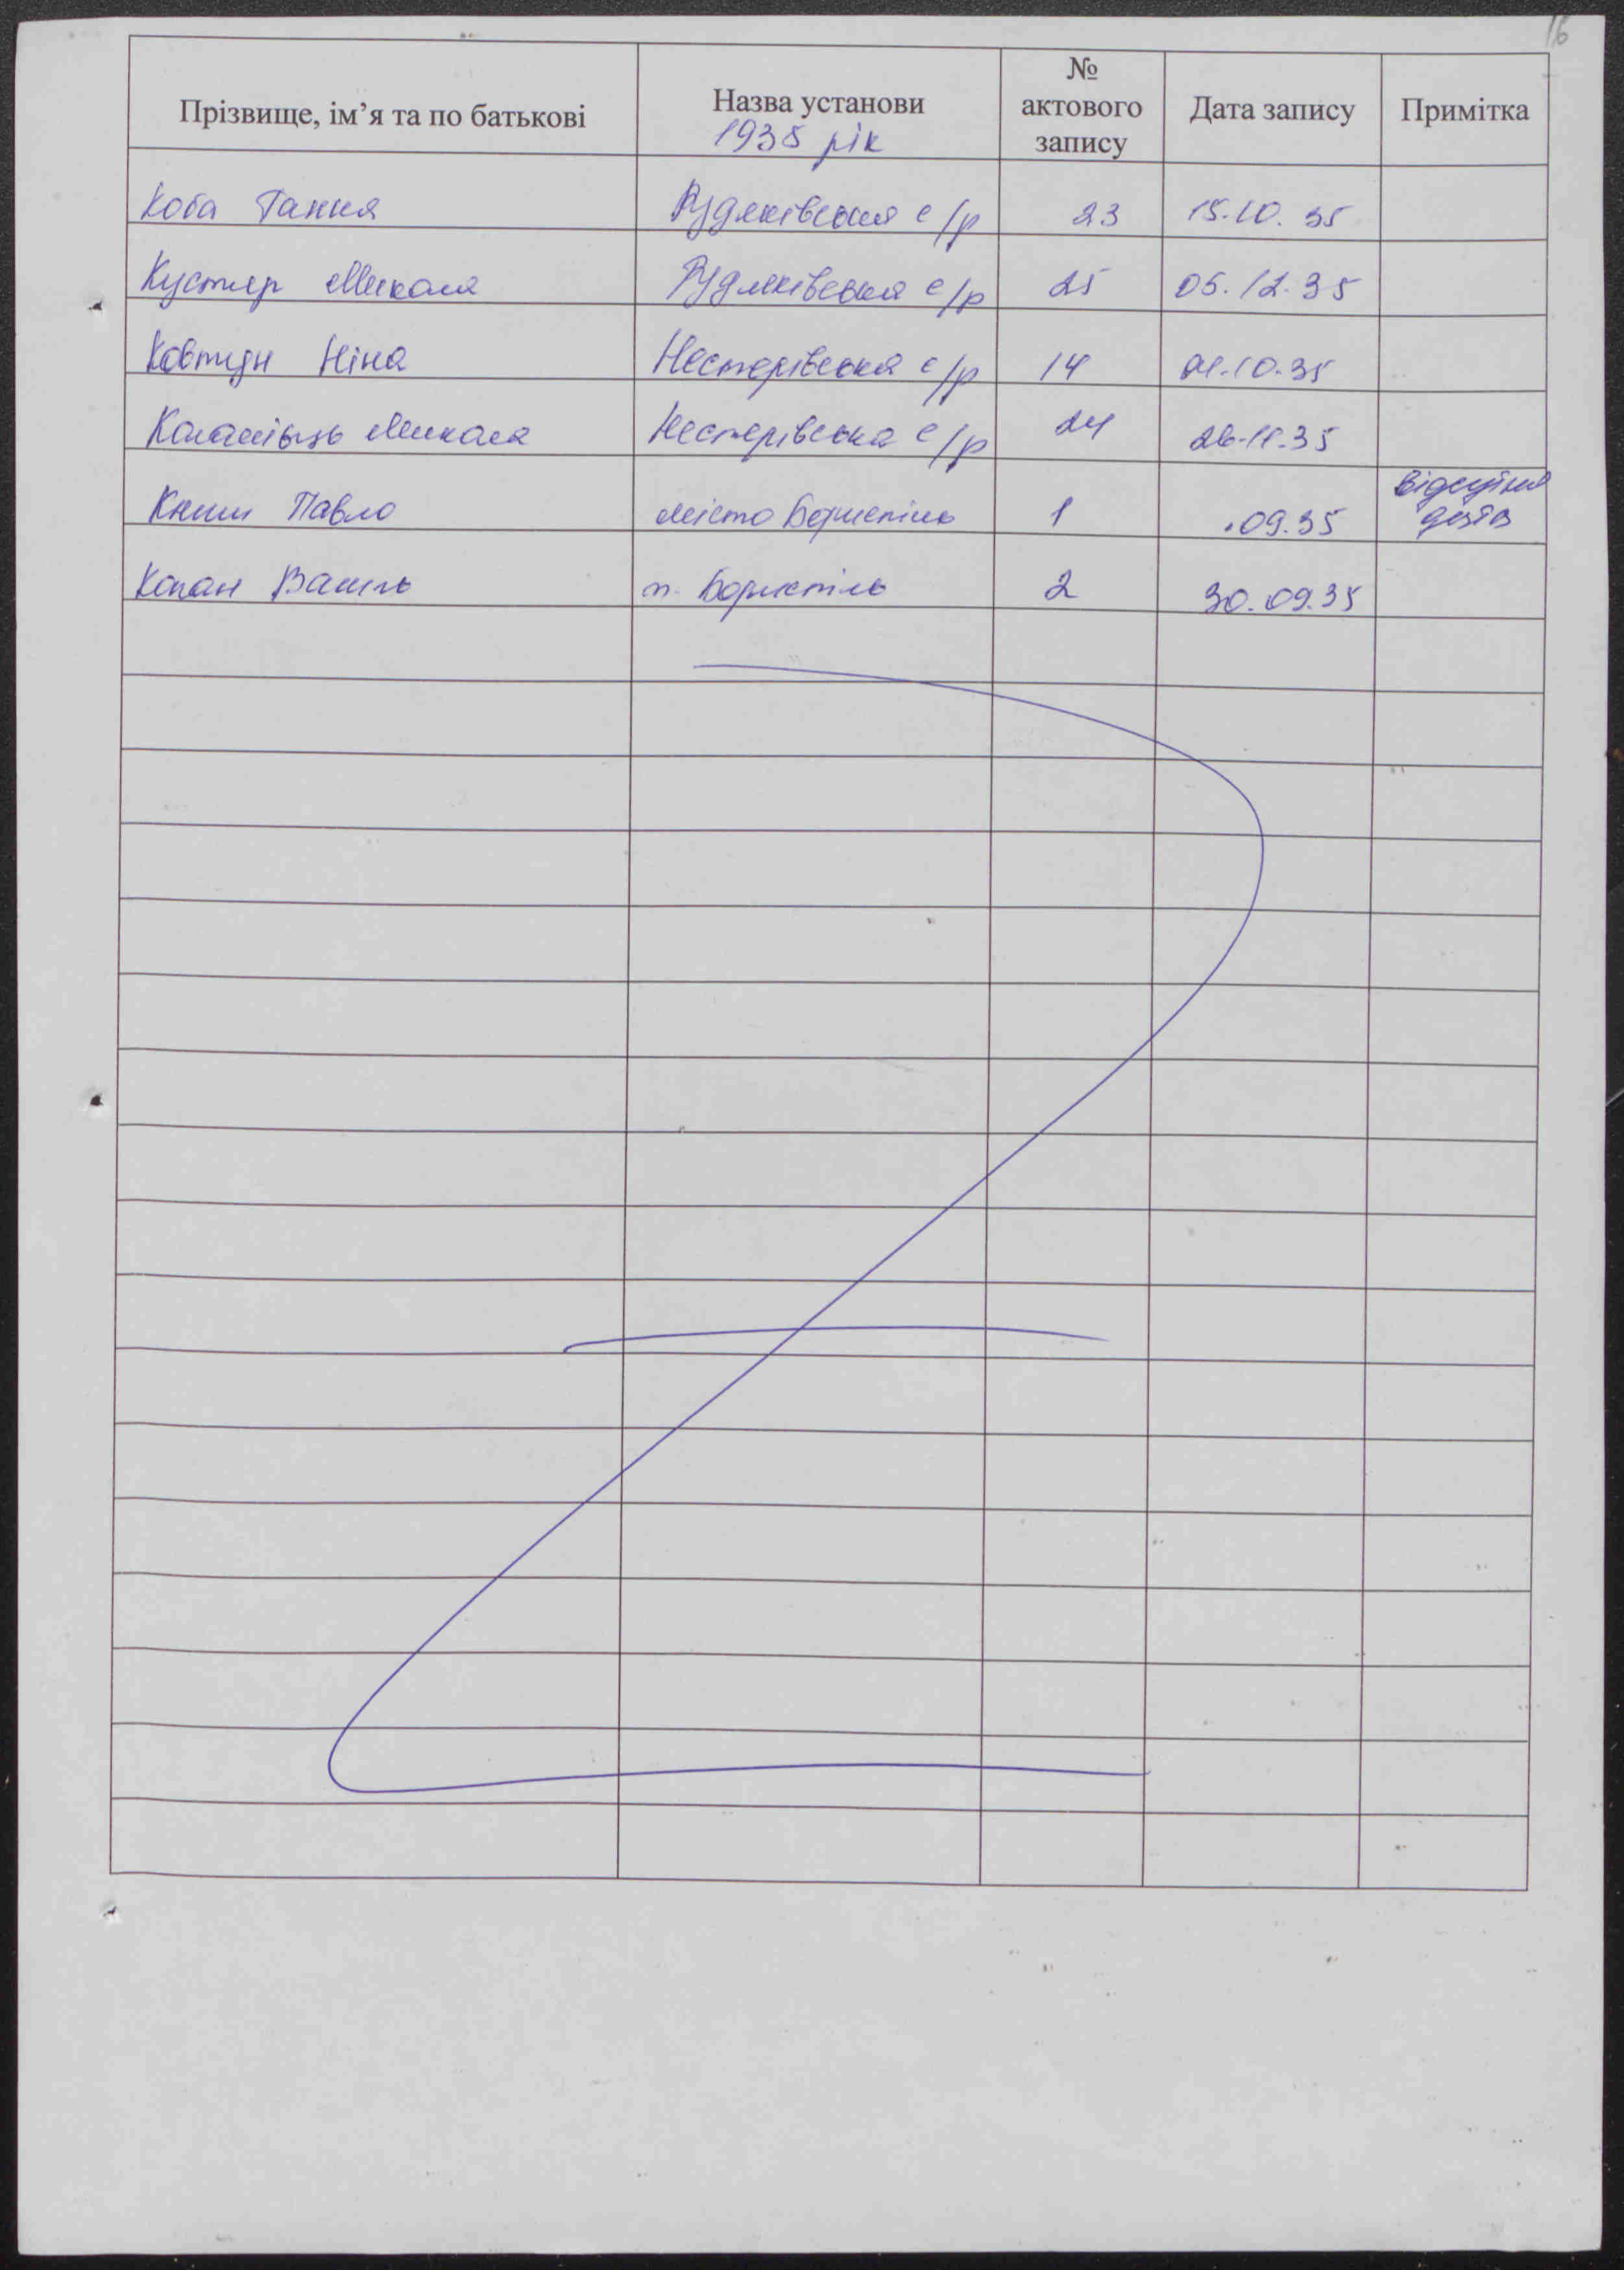 16
Прізвище, ім’я та по батькові Назва установи № актового запису Дата запису Примітка
1935 рік
Коба Ганна Рудяківська с/р 23 15.10.35
Кустяр Микола Рудяківська с/р 25 05.12.35
Ковтун Ніна Нестерівська с/р 14 01.10.35
Коломієць Микола Нестерівська с/р 24 26.11.35
Книш Павло місто Бориспіль 1 .09.35 Відсутня дата
Копан Василь м. Бориспіль 2 30.09.35